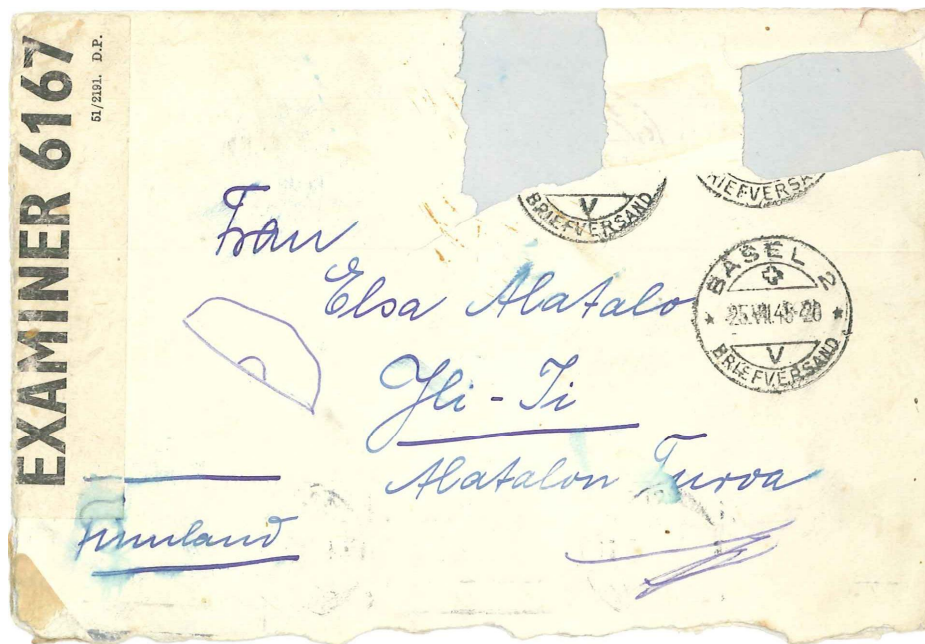 EXAMINER 6167
51/2191. D.P.
V
BRIEFVERSAND
RIEFVERSA
BASEL 2
V
BRIEFVERSAND
Frau
Elsa Alatalo
Yli - Ii
Alatalon Turva
Finnland